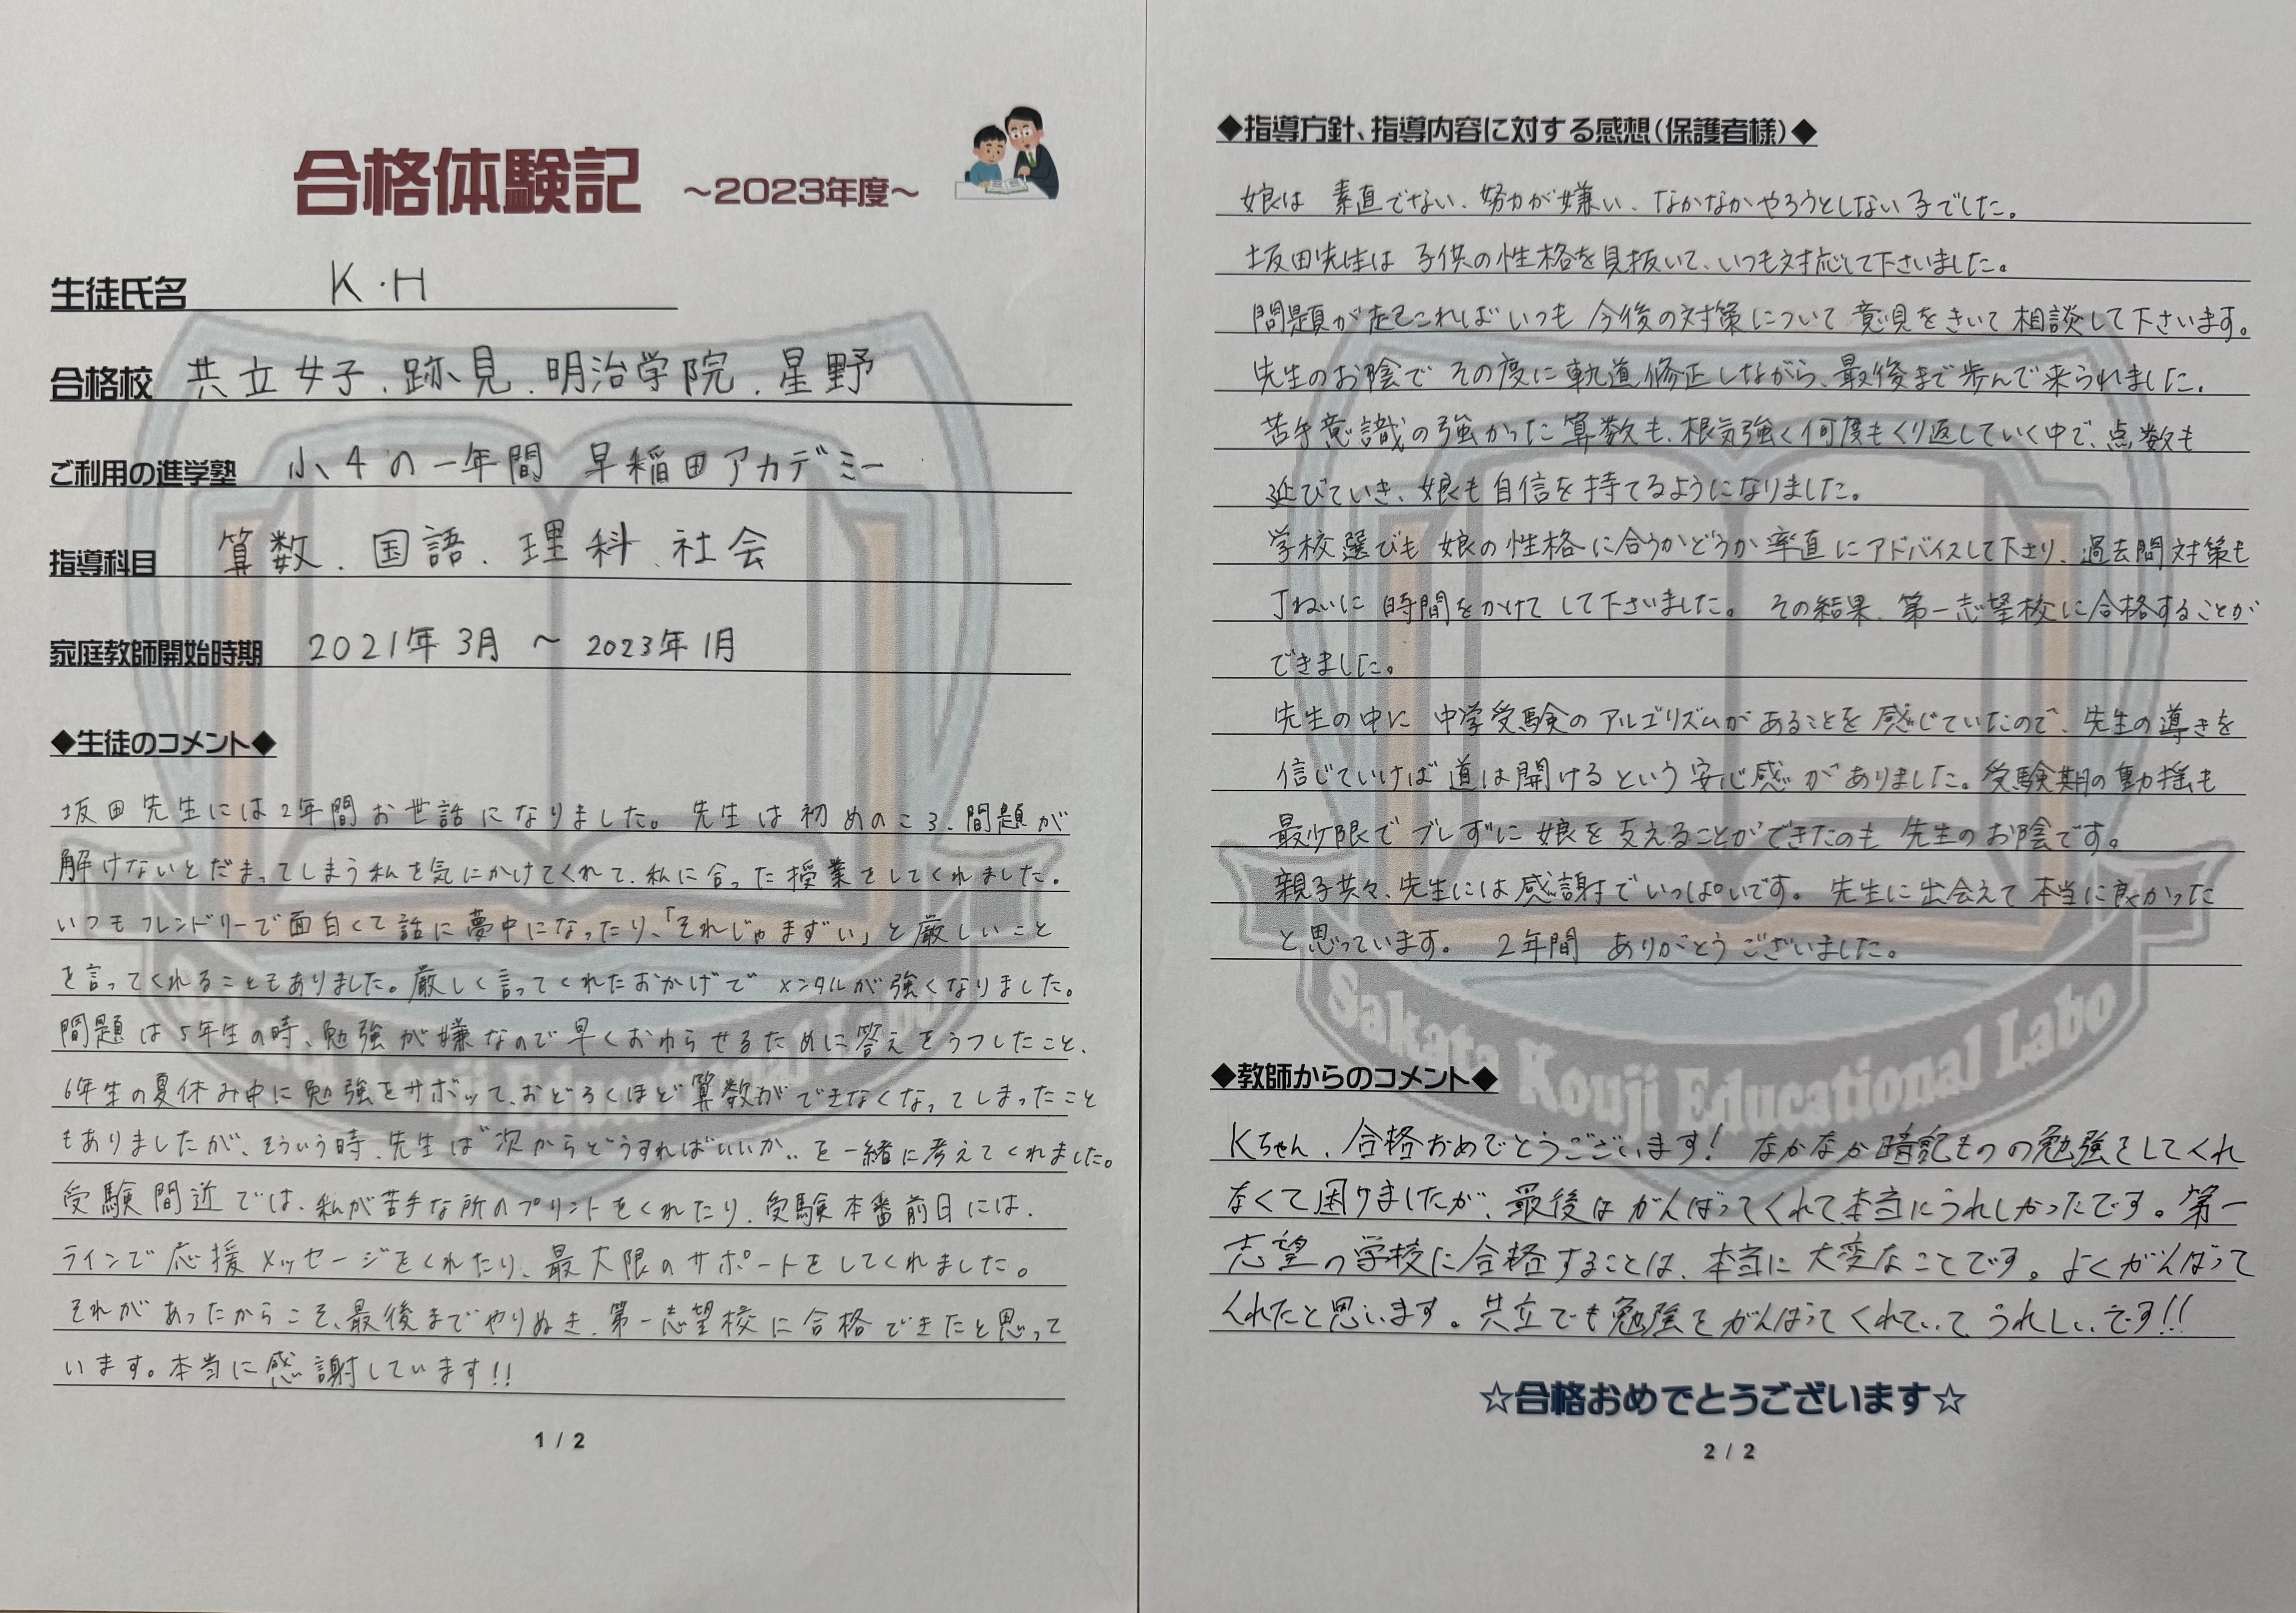 合格体験記 ～2023年度～
生徒氏名 K.H
合格校 共立女子、跡見、明治学院、星野
ご利用の進学塾 小4の一年間 早稲田アカデミー
指導科目 算数、国語、理科、社会
家庭教師開始時期 2021年3月 ～ 2023年1月
◆生徒のコメント◆
坂田先生には2年間お世話になりました。先生は初めのころ、問題が
解けないとだまってしまう私を気にかけてくれて、私に合った授業をしてくれました。
いつもフレンドリーで面白くて話に夢中になったり、「それじゃまずい」と厳しいこと
を言ってくれることもありました。厳しく言ってくれたおかげでメンタルが強くなりました。
問題は5年生の時、勉強が嫌なので早くおわらせるために答えをうつしたこと、
6年生の夏休み中に勉強をサボッて、おどろくほど算数ができなくなってしまったこと
もありましたが、そういう時、先生は"次からどうすればいいか"を一緒に考えてくれました。
受験間近では、私が苦手な所のプリントをくれたり、受験本番前日には、
ラインで応援メッセージをくれたり、最大限のサポートをしてくれました。
それがあったからこそ、最後までやりぬき、第一志望校に合格できたと思って
います。本当に感謝しています!!
1 / 2
◆指導方針、指導内容に対する感想(保護者様)◆
娘は 素直でない、努力が嫌い、なかなかやろうとしない子でした。
坂田先生は 子供の性格を見抜いて、いつも対応して下さいました。
問題が起これば いつも 今後の対策について 意見をきいて 相談して下さいます。
先生のお陰で その度に軌道修正しながら、最後まで歩んで来られました。
苦手意識の強かった算数も、根気強く何度もくり返していく中で、点数も
延びていき、娘も自信を持てるようになりました。
学校選びも 娘の性格に合うかどうか率直にアドバイスして下さり、過去問対策も
丁ねいに 時間をかけて して下さいました。 その結果、第一志望校に合格することが
できました。
先生の中に 中学受験のアルゴリズムがあることを感じていたので、先生の導きを
信じていけば道は開けるという安心感がありました。受験期の動揺も
最少限で ブレずに 娘を支えることができたのも 先生のお陰です。
親子共々、先生には感謝でいっぱいです。 先生に出会えて 本当に良かった
と思っています。 2年間 ありがとうございました。
Sakata Kouji Educational Labo
◆教師からのコメント◆
Kちゃん、合格おめでとうございます! なかなか暗記ものの勉強をしてくれ
なくて困りましたが、最後はがんばってくれて本当にうれしかったです。第一
志望の学校に合格することは、本当に大変なことです。よくがんばって
くれたと思います。共立でも勉強をがんばってくれていてうれしいです!!
☆合格おめでとうございます☆
2 / 2